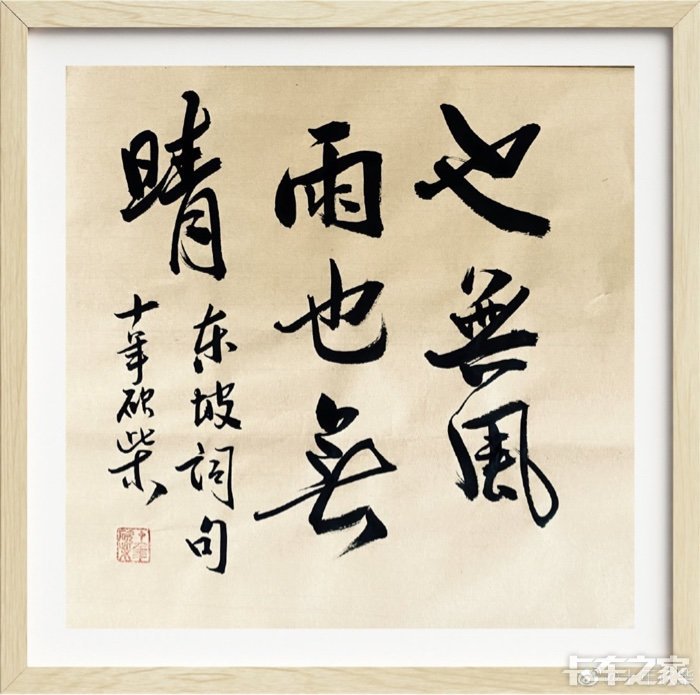 也無風
雨也無
晴
东坡词句
十年砍柴
卡车之家